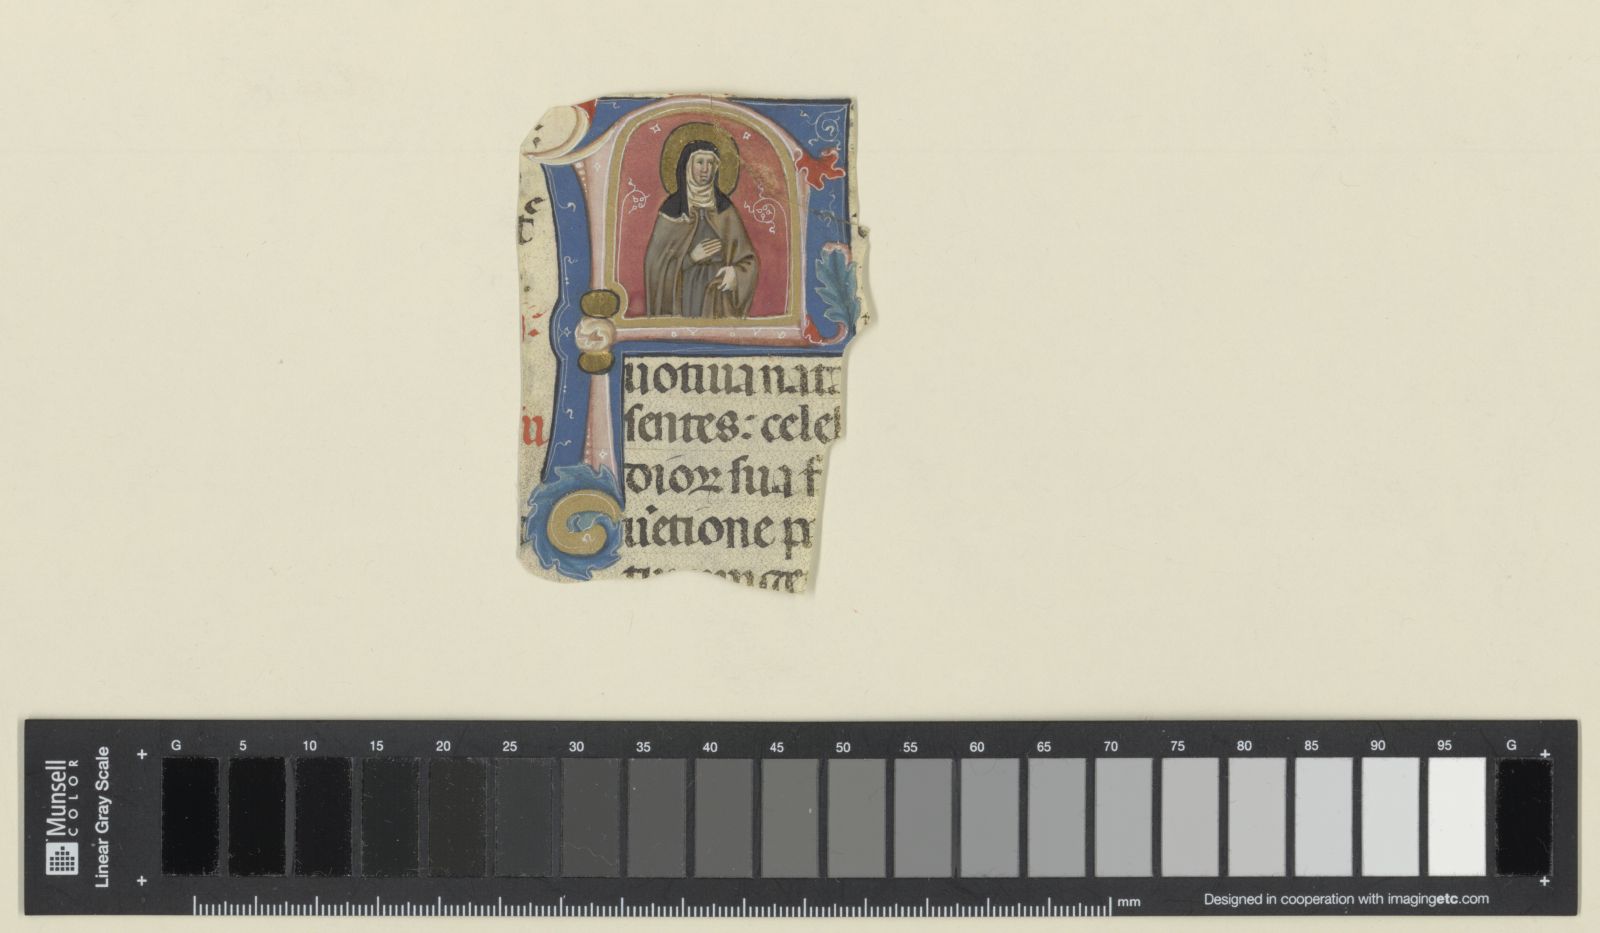 uotiua nat
sentes: celeb
dioꝝ sua f
uetione p
G 5 10 15 20 25 30 35 40 45 50 55 60 65 70 75 80 85 90 95 G
Munsell
COLOR
Linear Gray Scale
mm
Designed in cooperation with imagingetc.com